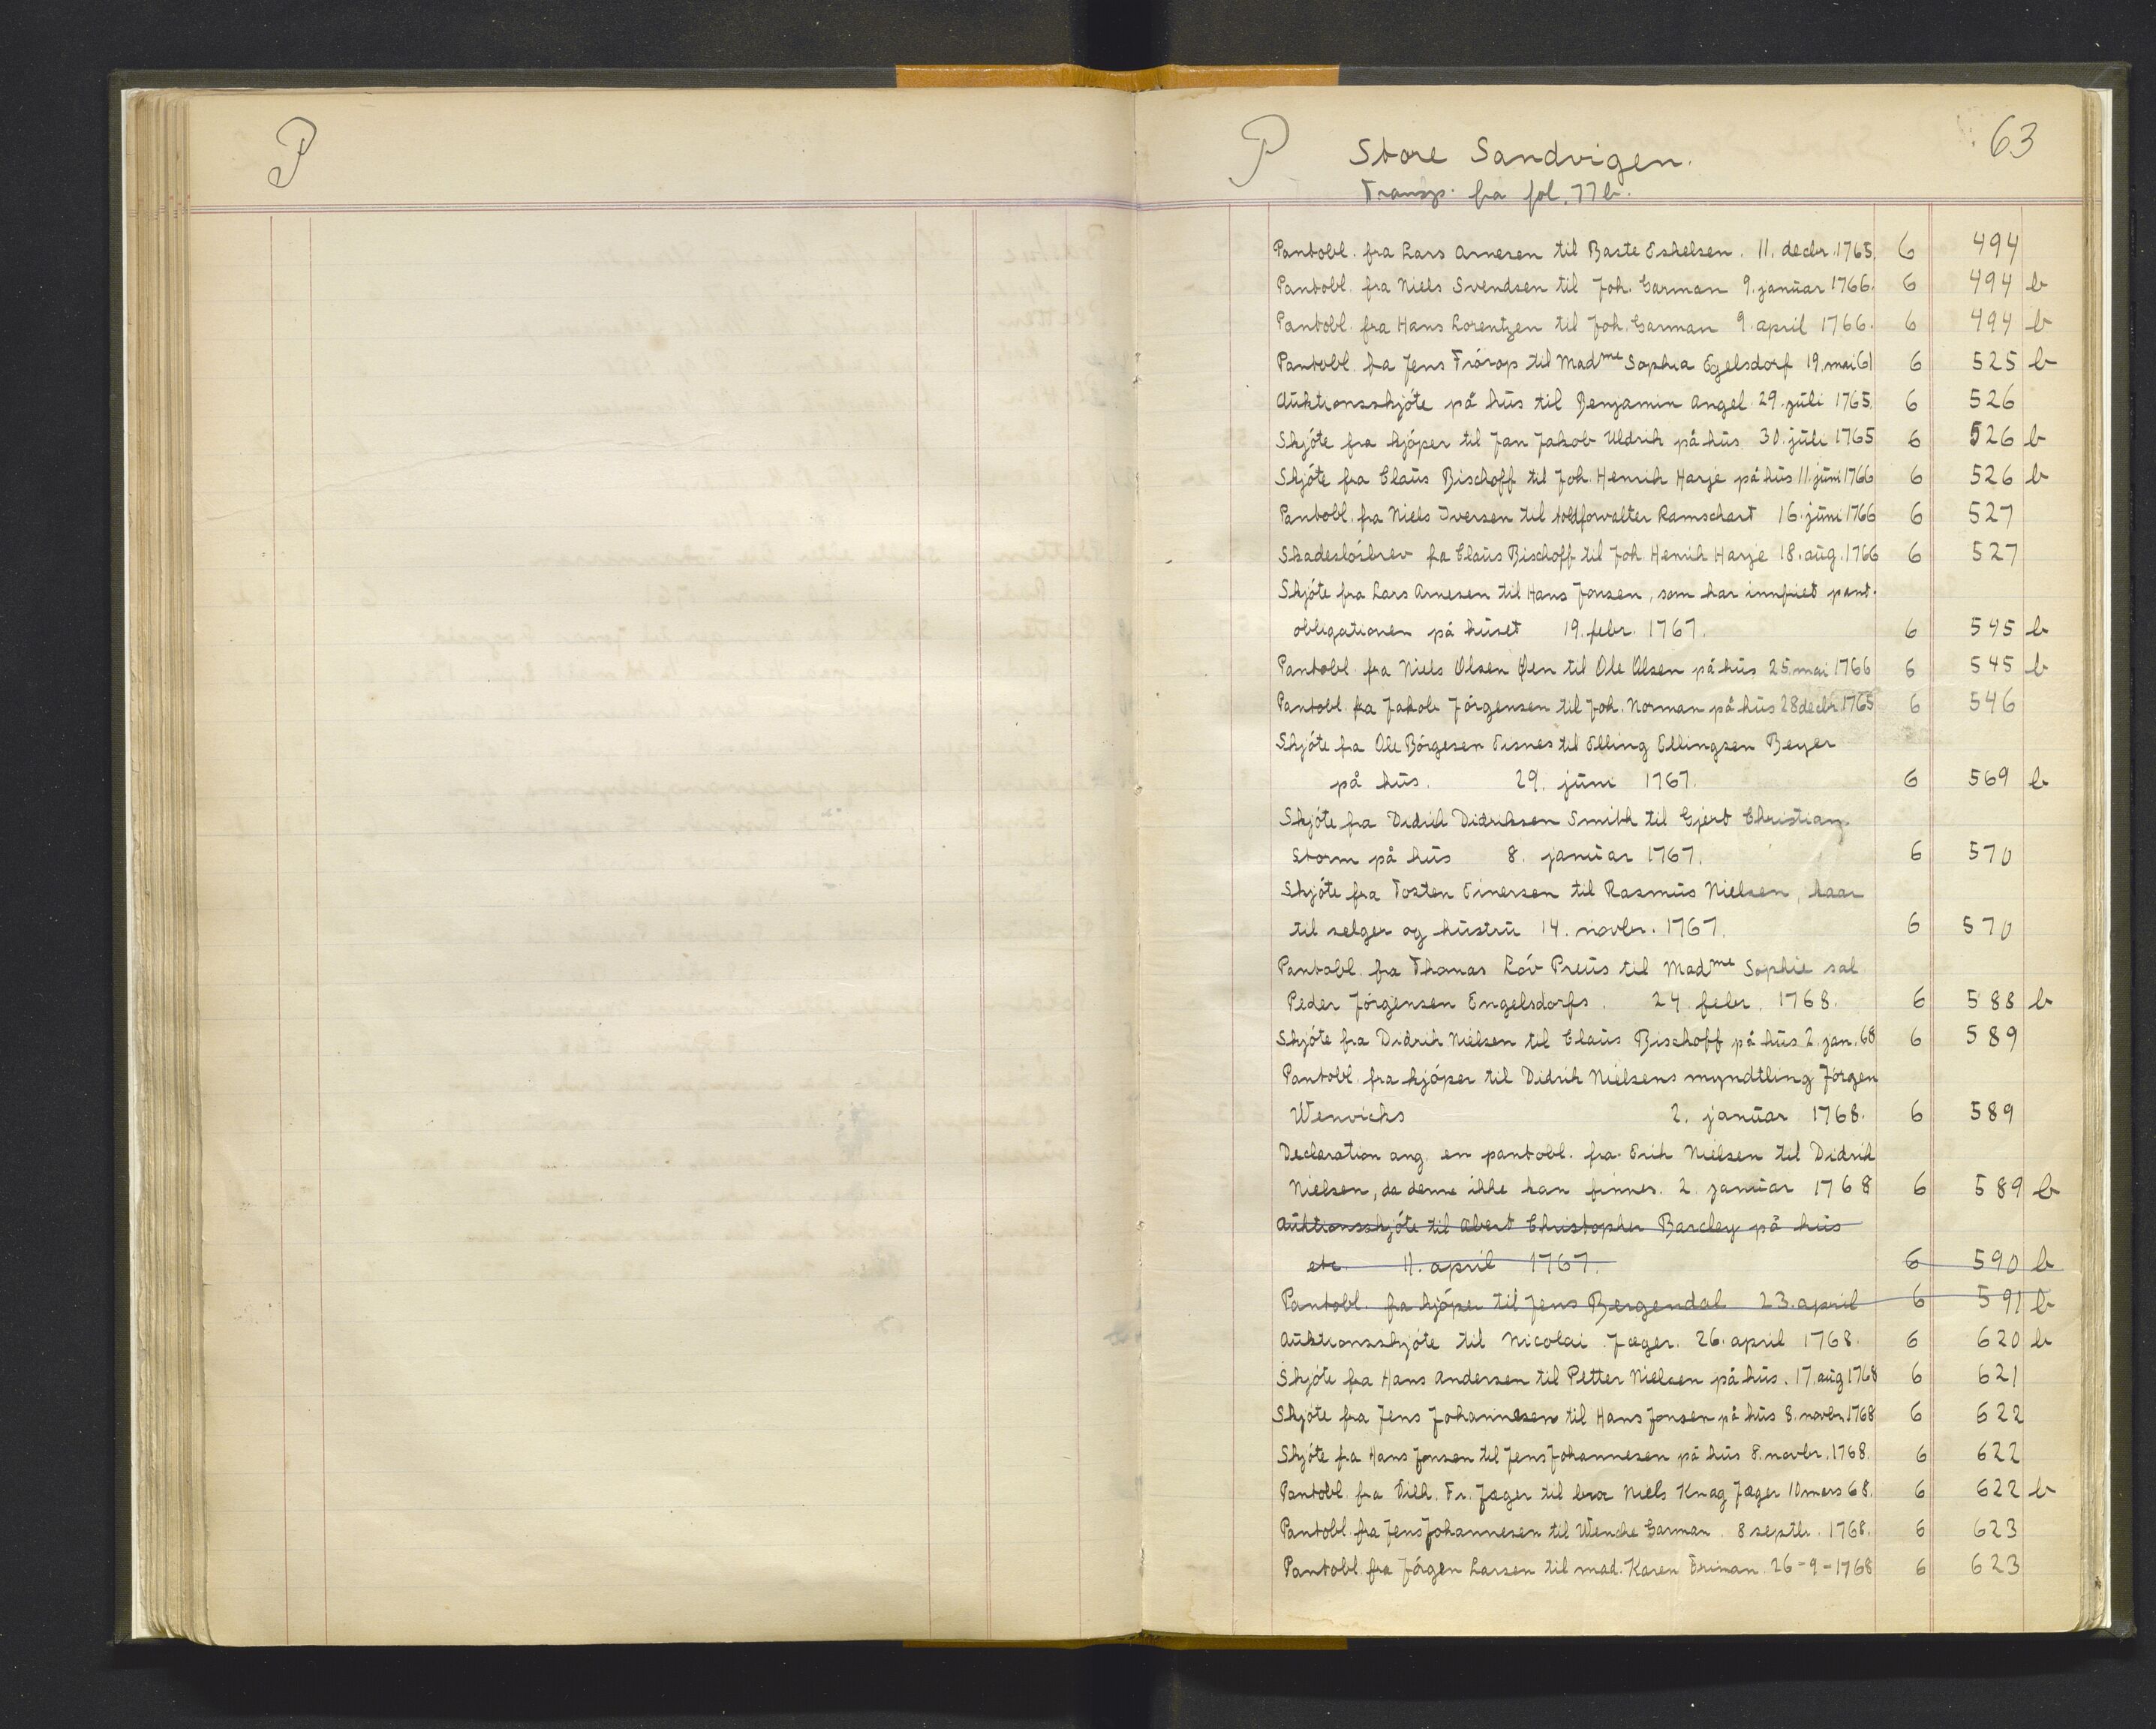 P
P Store Sandvigen. 63
Transp. fra fol. 77 b.
Pantobl. fra Lars Arnesen til Baste Eskelsen. 11. decbr. 1765. 6 494
Pantobl. fra Niels Svendsen til Joh. Garman 9. januar 1766. 6 494 b
Pantobl. fra Hans Lorentzen til Joh. Garman 9. april 1766. 6 494 b
Pantobl. fra Jens Frörop til Madme Sophia Egelsdorf 19. mai 61 6 525 b
Auktionsskjöte på hus til Benjamin Angel 29. juli 1765. 6 526
Skjöte fra kjöper til Jan Jakob Uldrik på hus 30. juli 1765 6 526 b
Skjöte fra Claus Bischoff til Joh. Henrik Harje på hus 11. juni 1766 6 526 b
Pantobl. fra Niels Iversen til toldforvalter Ramschart 16. juni 1766 6 527
Skadeslösbrev fra Claus Bischoff til Joh. Henrik Harje 18. aug. 1766 6 527
Skjöte fra Lars Arnesen til Hans Jonsen, som har innfriet pant-
obligationen på huset 19. febr. 1767. 6 545 b
Pantobl. fra Niels Olsen Øen til Ole Olsen på hus 25. mai 1766 6 545 b
Pantobl. fra Jakob Jörgensen til Joh. Norman på hus 28 decbr. 1765 6 546
Skjöte fra Ole Börgesen Eisnes til Elling Ellingsen Beyer
på hus. 29. juni 1767. 6 569 b
Skjöte fra Didrik Didriksen Smith til Gjert Christian
Storm på hus 8. januar 1767. 6 570
Skjöte fra Tosten Einersen til Rasmus Nielsen, kaar
til selger og hustru 14. novbr. 1767. 6 570
Pantobl. fra Thomas Löv Preus til Madme Sophie sal
Peder Jörgensen Engelsdorfs. 24. febr. 1768. 6 588 b
Skjöte fra Didrik Nielsen til Claus Bischoff på hus 2. jan. 68 6 589
Pantobl. fra kjöper til Didrik Nielsens myndtling Jörgen
Wenvicks 2. januar 1768. 6 589
Declaration ang. en pantobl. fra Erik Nielsen til Didrik
Nielsen, da denne ikke kan finnes. 2. januar 1768 6 589 b
Auktionsskjöte til Abert Christopher Barcley på hus
etc. 11. april 1767. 6 590 b
Pantobl. fra kjöper til Jens Bergendal 23. april 6 591 b
Auktionsskjöte til Nicolai Jæger. 26. april 1768. 6 620 b
Skjöte fra Hans Andersen til Petter Nielsen på hus. 17. aug 1768 6 621
Skjöte fra Jens Johannesen til Hans Jonsen på hus 8. novbr. 1768 6 622
Skjöte fra Hans Jonsen til Jens Johannesen på hus 8. novbr. 1768. 6 622
Pantobl. fra Dith. Fr. Jæger til bror Niels Knag Jæger 10 mars 68. 6 622 b
Pantobl. fra Jens Johannesen til Wenche Garman. 8 septbr. 1768. 6 623
Pantobl. fra Jörgen Larsen til mad. Karen Friman. 26-9-1768 6 623